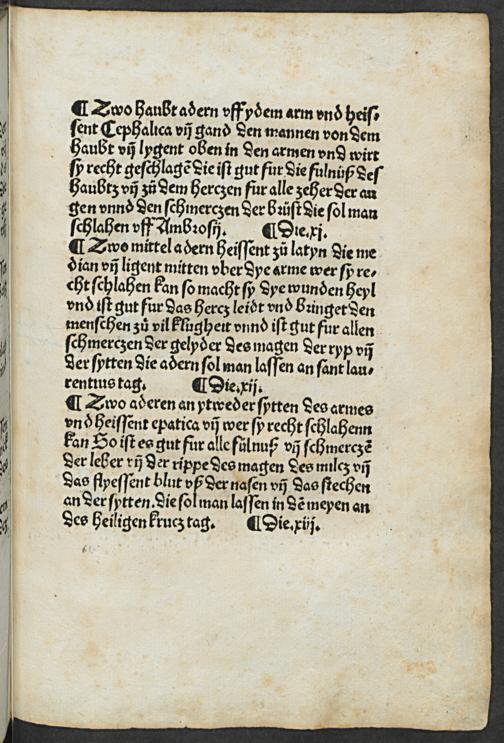 ¶ Zwo haubt adern vff ydem arm vnd heis⸗
sent Cephalica vn̄ gand den mannen von dem
haubt vn̄ lygent oben in den armen vnd wirt
sy recht geschlagē die ist gut fur die fulnuß des
haubtz vn̄ zů dem herczen fur alle zeher der au
gen vnnd den schmerczen der brüst die sol man
schlahen vff Ambrosij. ¶ Die.xj.
¶ Zwo mittel adern heissent zů latyn die me
dian vn̄ ligent mitten vber dye arme wer sy re⸗
cht schlahen kan so macht sy dye wunden heyl
vnd ist gut fur das hercz leidt vnd bringet den
menschen zů vil klugheit vnnd ist gut fur allen
schmerczen der gelyder des magen der ryp vn̄
der sytten die adern sol man lassen an sant lau⸗
rentius tag. ¶ Die.xij.
¶ Zwo aderen an ytweder sytten des armes
vnd heissent epatica vn̄ wer sy recht schlahenn
kan So ist es gut fur alle fülnuß vn̄ schmerczē
der leber vn̄ der rippe des magen des milcz vn̄
das flyessent blut vß der nasen vn̄ das stechen
an der sytten. die sol man lassen in dē meyen an
des heiligen krucz tag. ¶ Die.xiij.